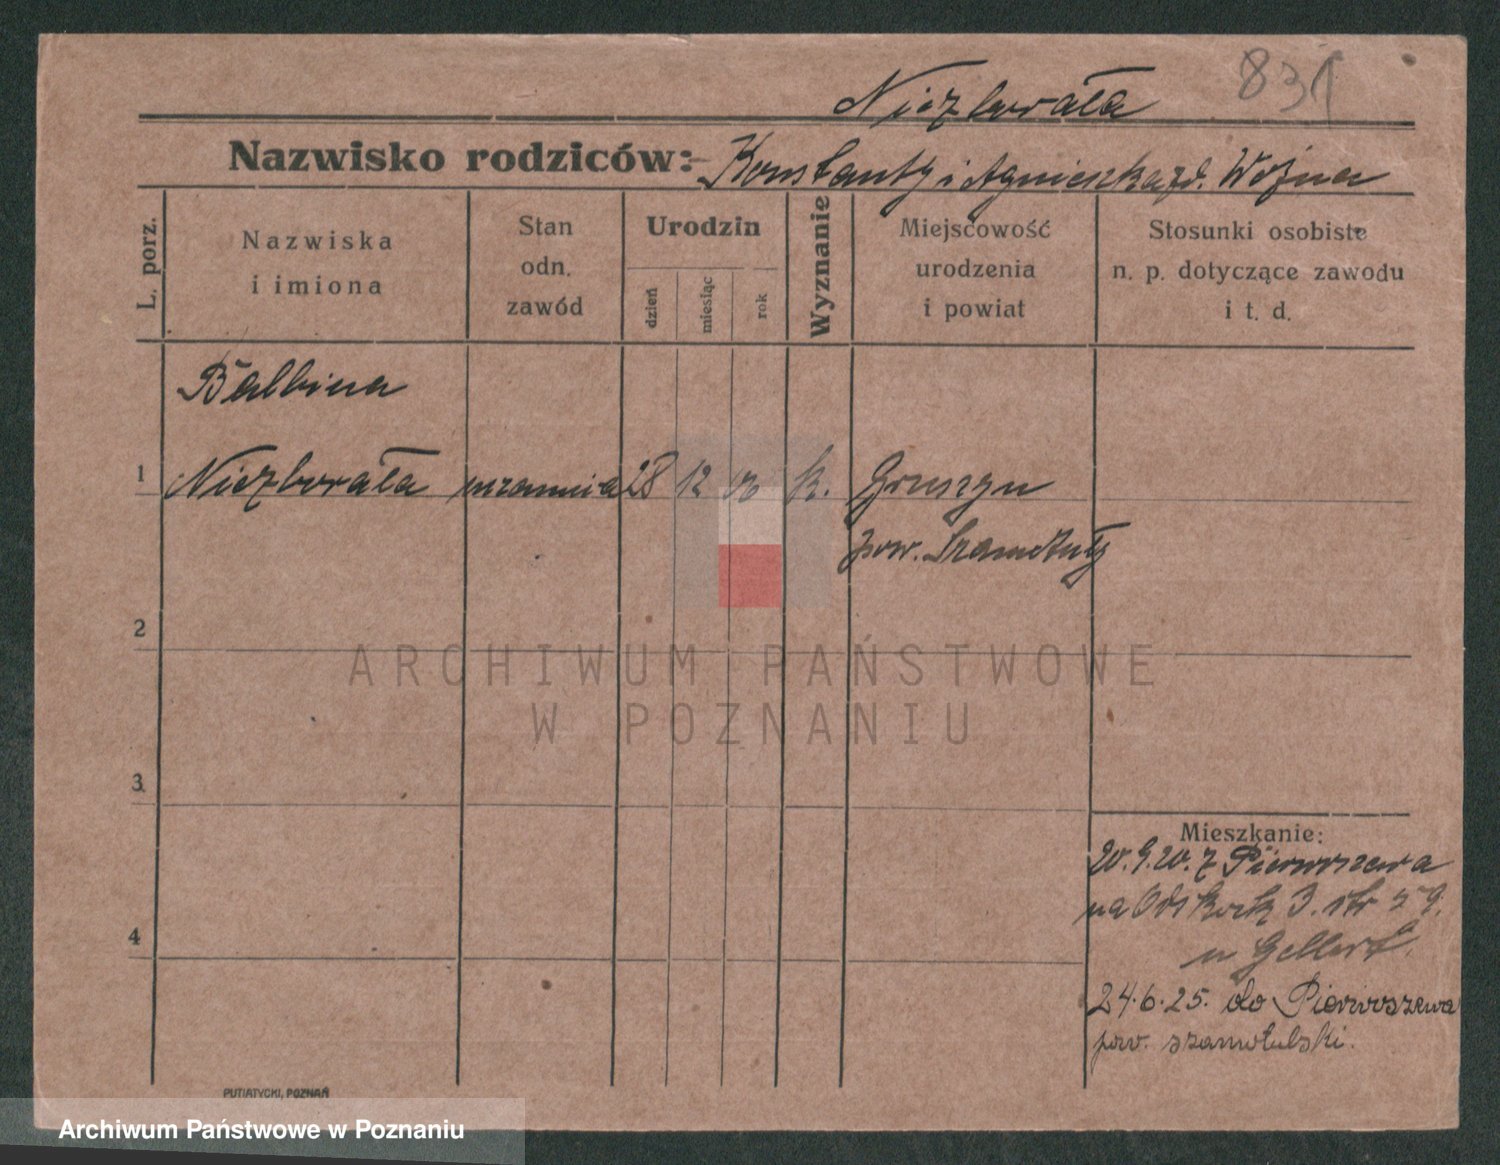 831
Niezborała
Nazwisko rodziców: Konstanty i Agnieszka zd. Wojna
L. porz.
Nazwiska
i imiona
Stan
odn.
zawód
Urodzin
dzień
miesiąc
rok
Wyznanie
Miejscowość
urodzenia
i powiat
Stosunki osobiste
n. p. dotyczące zawodu
i t. d.
Balbina
1 Niezborała 28 12 k. Gruszyn
pow. Szamotuły
2
3
4
Mieszkanie:
20.9.20. z Pierwszewa
na 3. str
u Gellert.
24.6.25. do Pierwszewa
pow. szamotulski.
PUTIATYCKI, POZNAŃ
ARCHIWUM PAŃSTWOWE
W POZNANIU
Archiwum Państwowe w Poznaniu